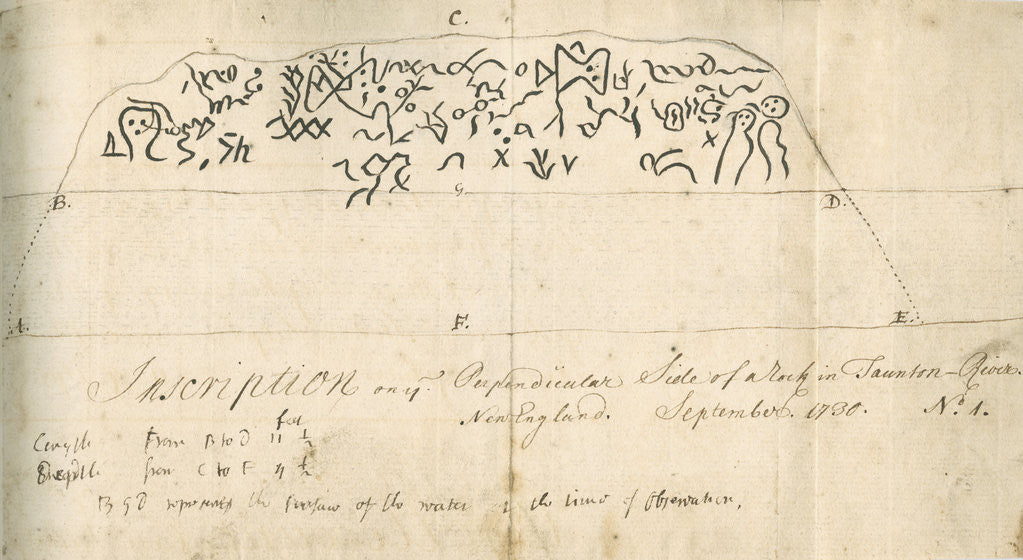 C.
B. G. D.
A. F. E.
Inscription on yᵉ Perpendicular Side of a Rock in Taunton-River.
New England. September. 1730. Nº 1.
feet
Length From B to D 11 ½
Depth from C to F 4 ½
B G D represents the surface of the water at the time of Observation.